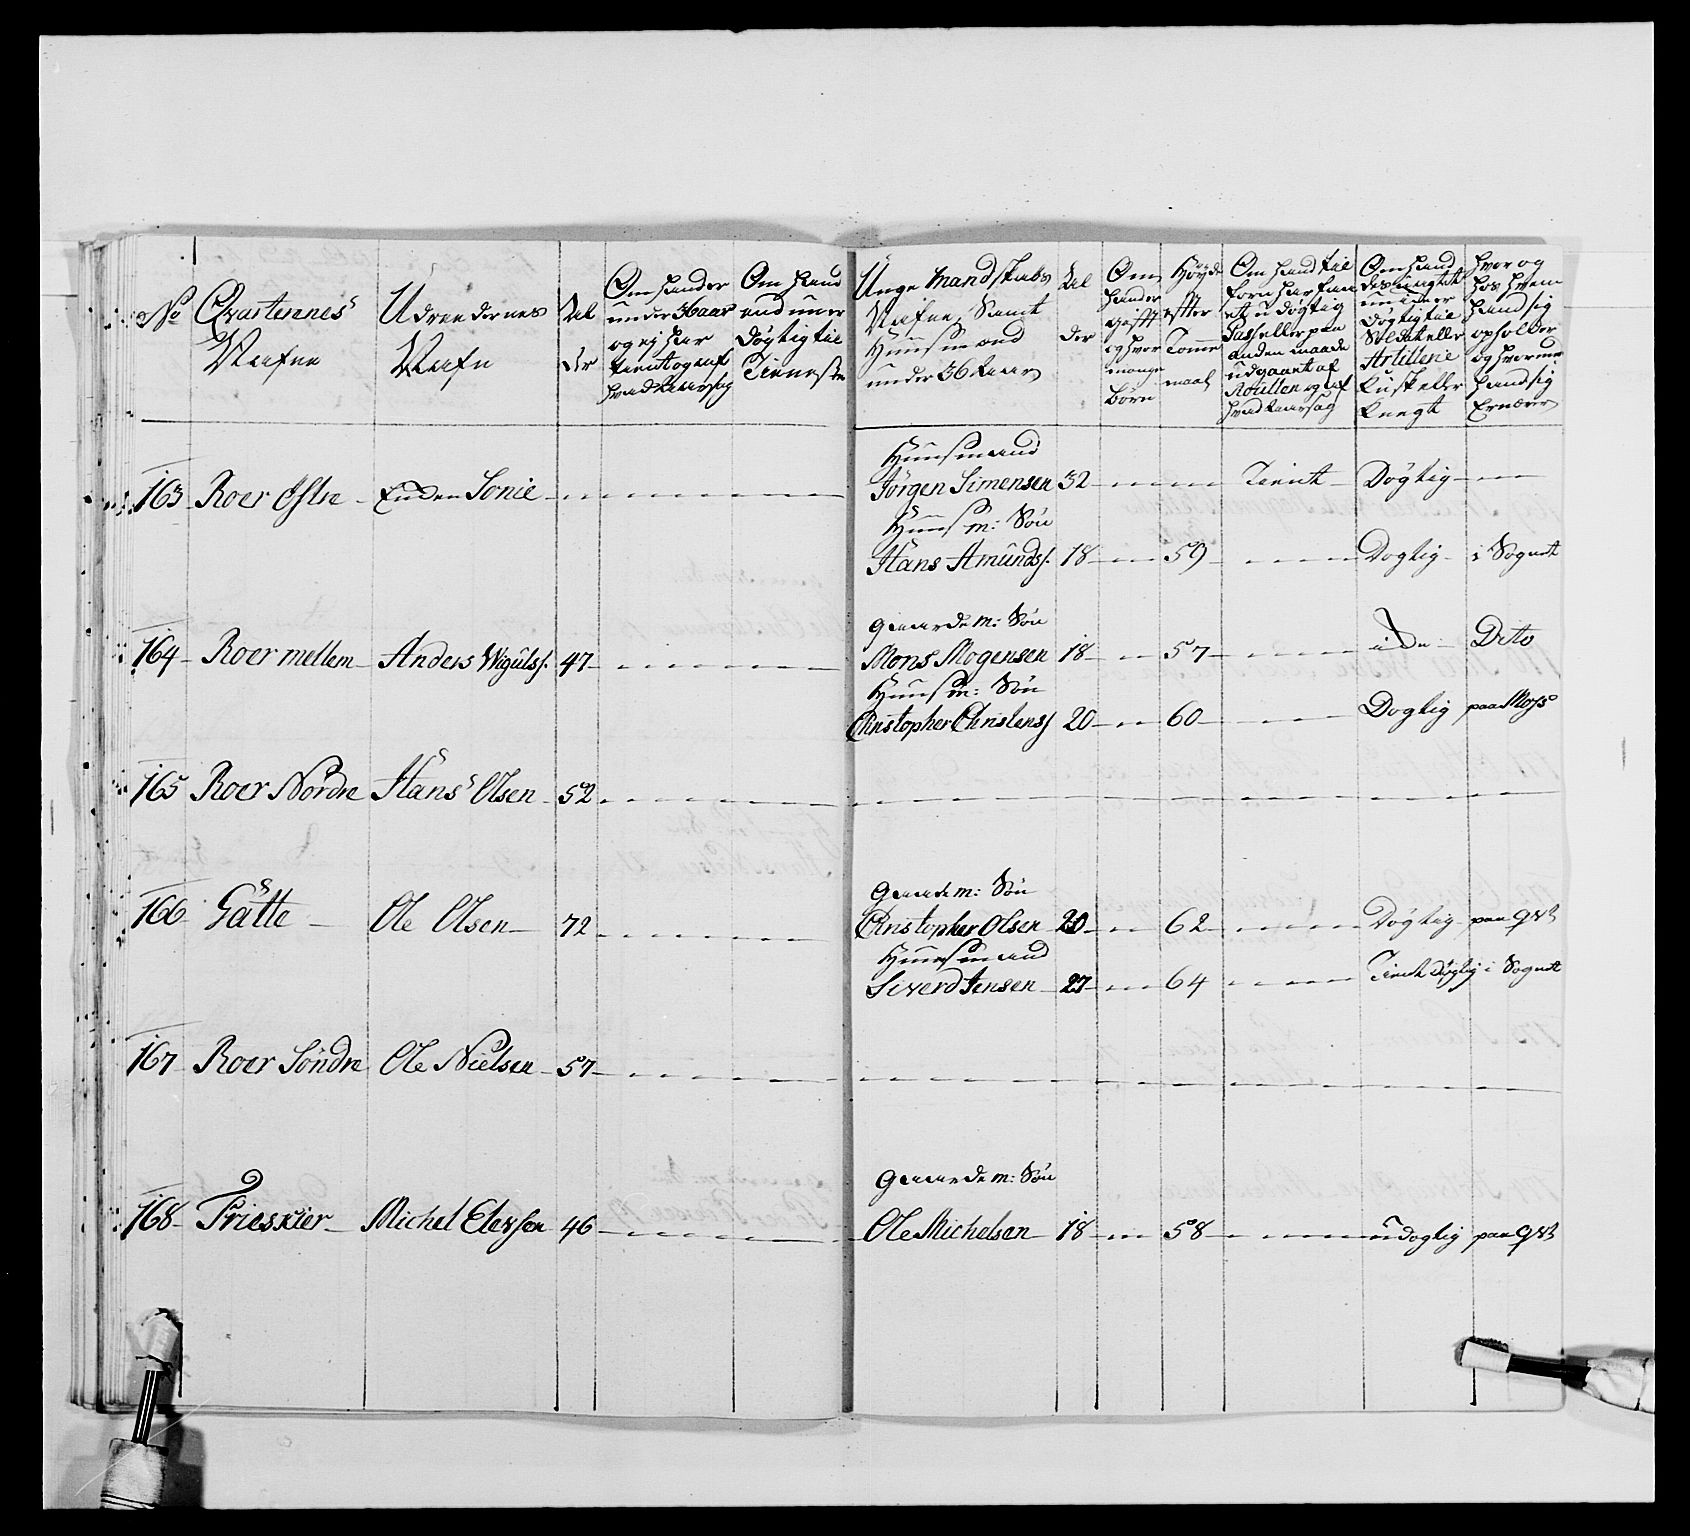 No
Qvarterernes
Nafne
Udreedernes
Nafn
Al
der
Om hand er
under 36 aar
og ej har
tient og af
hvad Aarsag
Om hand
end nu er
Døgtig til
Tieneste
Unge Mandskabs
Nafne, Samt
Huusmænd
under 36 Aar
Al
der
Om
hand er
gift
og hvor
mange
børn
Høyde
efter
Tomme
maal
Om hand til
forn har faaet
udøgtig
Pass eller paa
anden maade
udgaaet af
Roullen og af
hvad aarsag
Om hand
des uagtet
nu er
Døgtig til
Soldat eller
Artillerie
Kusk eller
Knegt
hvor og
hos hvem
hand sig
opholder
og hvormed
hand sig
Ernærer
163 Roer Østre Enden Sonie
Huusmand
Jørgen Simensen 32 Tient Døgtig
Huusm: Søn
Hans Amunds. 18 59 Dogtig i Sognet
164 Roer mellem Anders Wiguls. 47
Gaardem: Søn
Mons Mogensen 18 57 Dito
Huusm: Søn
Christopher Christens 20 60 Dogtig paa Moss
165 Roer Nordre Hans Olsen 52
166 Gätte Ole Olsen 72
Gaardem: Søn
Christopher Olsen 20 62 Døgtig paa Qvt
Huusmand
Siverd Jensen 27 64 Tient Døgtig i Sognet
167 Roer Söndre Ole Nielsen 57
168 Frieskier Michel Elevsen 46
Gaardem: Søn
Ole Michelsen 18 58 udogtig paa Qvt